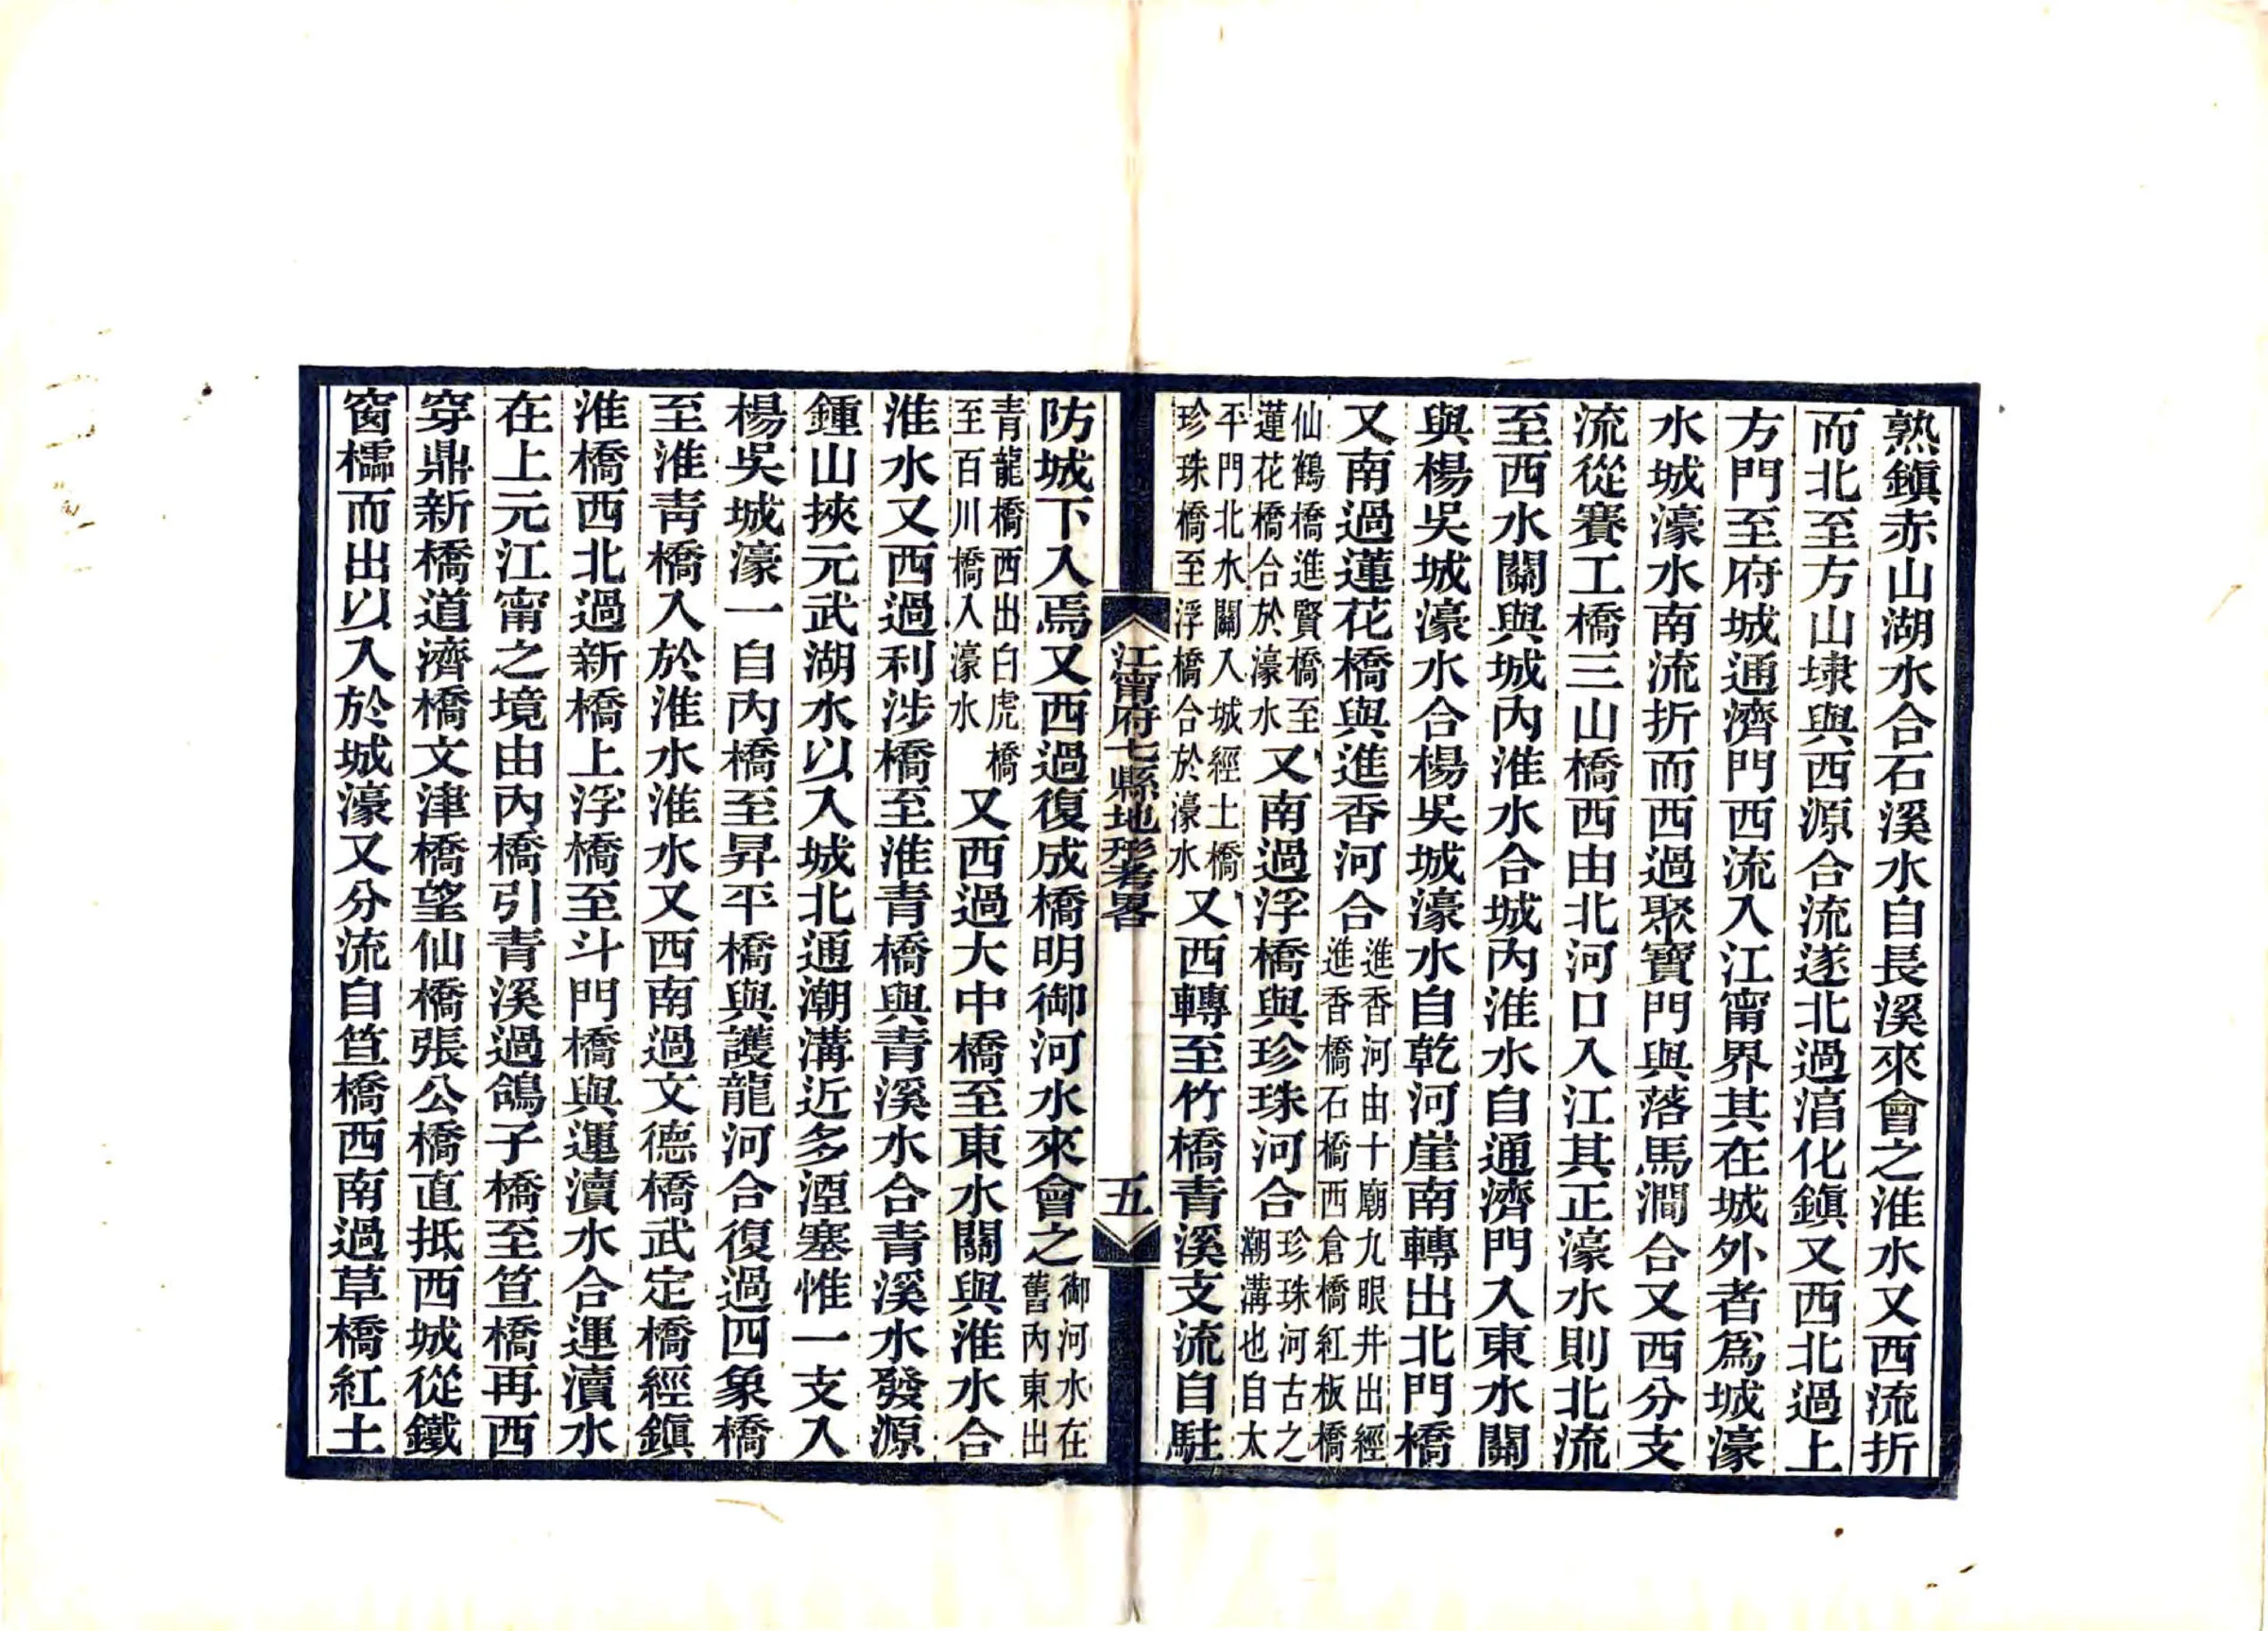 熟鎭赤山湖水合石溪水自長溪來會之淮水又西流折
而北至方山埭與西源合流遂北過湻化鎭又西北過上
方門至府城通濟門西流入江甯界其在城外者爲城濠
水城濠水南流折而西過聚寶門與落馬澗合又西分支
流從賽工橋三山橋西由北河口入江其正濠水則北流
至西水關與城內淮水合城內淮水自通濟門入東水關
與楊吳城濠水合楊吳城濠水自乾河崖南轉出北門橋
又南過蓮花橋與進香河合進香河由十廟九眼井出經進香橋石橋西倉橋紅板橋
仙鶴橋進賢橋至蓮花橋合於濠水又南過浮橋與珍珠河合珍珠河古之潮溝也自太
平門北水關入城經土橋珍珠橋至浮橋合於濠水又西轉至竹橋青溪支流自駐
江甯府七縣地形考畧
五
防城下入焉又西過復成橋明御河水來會之御河水在舊內東出
青龍橋西出白虎橋至百川橋入濠水又西過大中橋至東水關與淮水合
淮水又西過利涉橋至淮青橋與青溪水合青溪水發源
鍾山挾元武湖水以入城北通潮溝近多湮塞惟一支入
楊吳城濠一自內橋至昇平橋與護龍河合復過四象橋
至淮青橋入於淮水淮水又西南過文德橋武定橋經鎭
淮橋西北過新橋上浮橋至斗門橋與運瀆水合運瀆水
在上元江甯之境由內橋引青溪過鴿子橋至笪橋再西
穿鼎新橋道濟橋文津橋望仙橋張公橋直抵西城從鐵
窗櫺而出以入於城濠又分流自笪橋西南過草橋紅土